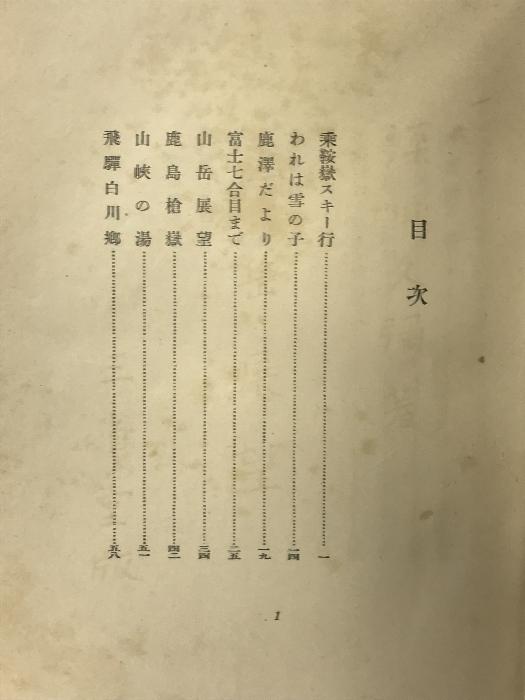 目次
乗鞍嶽スキー行……一
われは雪の子……一四
鹿澤だより……一九
富士七合目まで……二五
山岳展望……三四
鹿島槍嶽……四二
山峽の湯……五一
飛驒白川鄕……五八
1